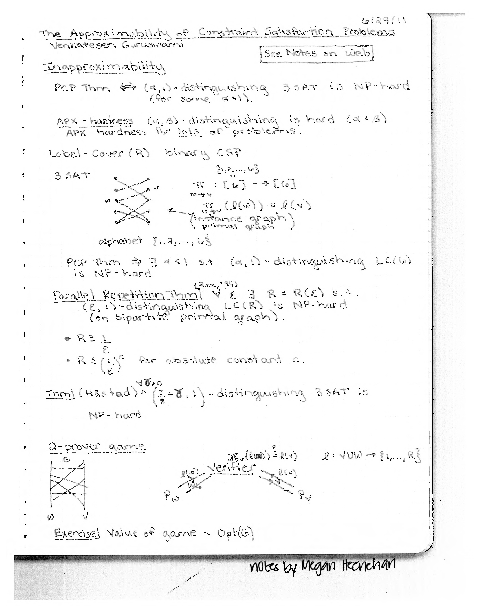 6/27/11
The Approximability of Constraint Satisfaction Problems
Venkatesan Guruswami
See Notes on Web
Inapproximability
PCP Thm ⇔ (α,1)-distinguishing 3SAT is NP-hard
(for some α<1).
APX-hardness (α,β)-distinguishing is hard (α<β)
APX hardness for lots of problems.
Label-Cover (R) binary CSP
3SAT
π : [6] → [6]
(instance graph)
primal graph
alphabet {1,2,...,6}
PCP Thm ⇒ ∃ α<1 s.t. (α,1)-distinguishing LC(6)
is NP-hard
Parallel Repetition Thm ∀ ε ∃ R = R(ε) s.t.
(ε,1)-distinguishing LC(R) is NP-hard
(on bipartite primal graph).
• R ≥ 1/ε
• R ≤ (1/ε)^c for absolute constant c.
Thm (Håstad) ∀γ>0 (7/8+γ,1)-distinguishing 3SAT is
NP-hard
2-prover game
Verifier
ℓ : V∪W → {1,...,R}
P_W
P_V
Exercise Value of game = Opt(G)
notes by Megan Heenehan